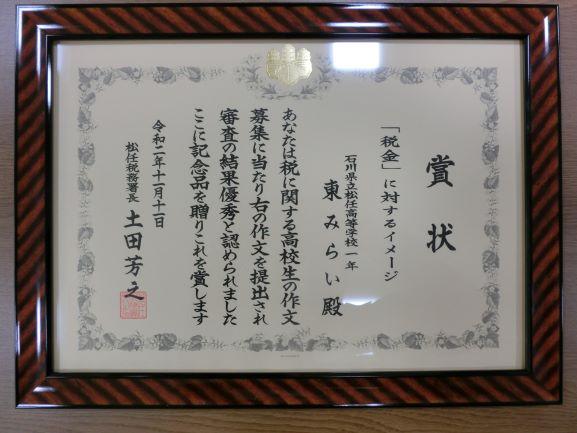 賞状
「税金」に対するイメージ
石川県立松任高等学校 一年
東みらい殿
あなたは税に関する高校生の作文
募集に当たり右の作文を提出され
審査の結果優秀と認められました
ここに記念品を贈りこれを賞します
令和二年十一月十一日
松任税務署長 土田芳之